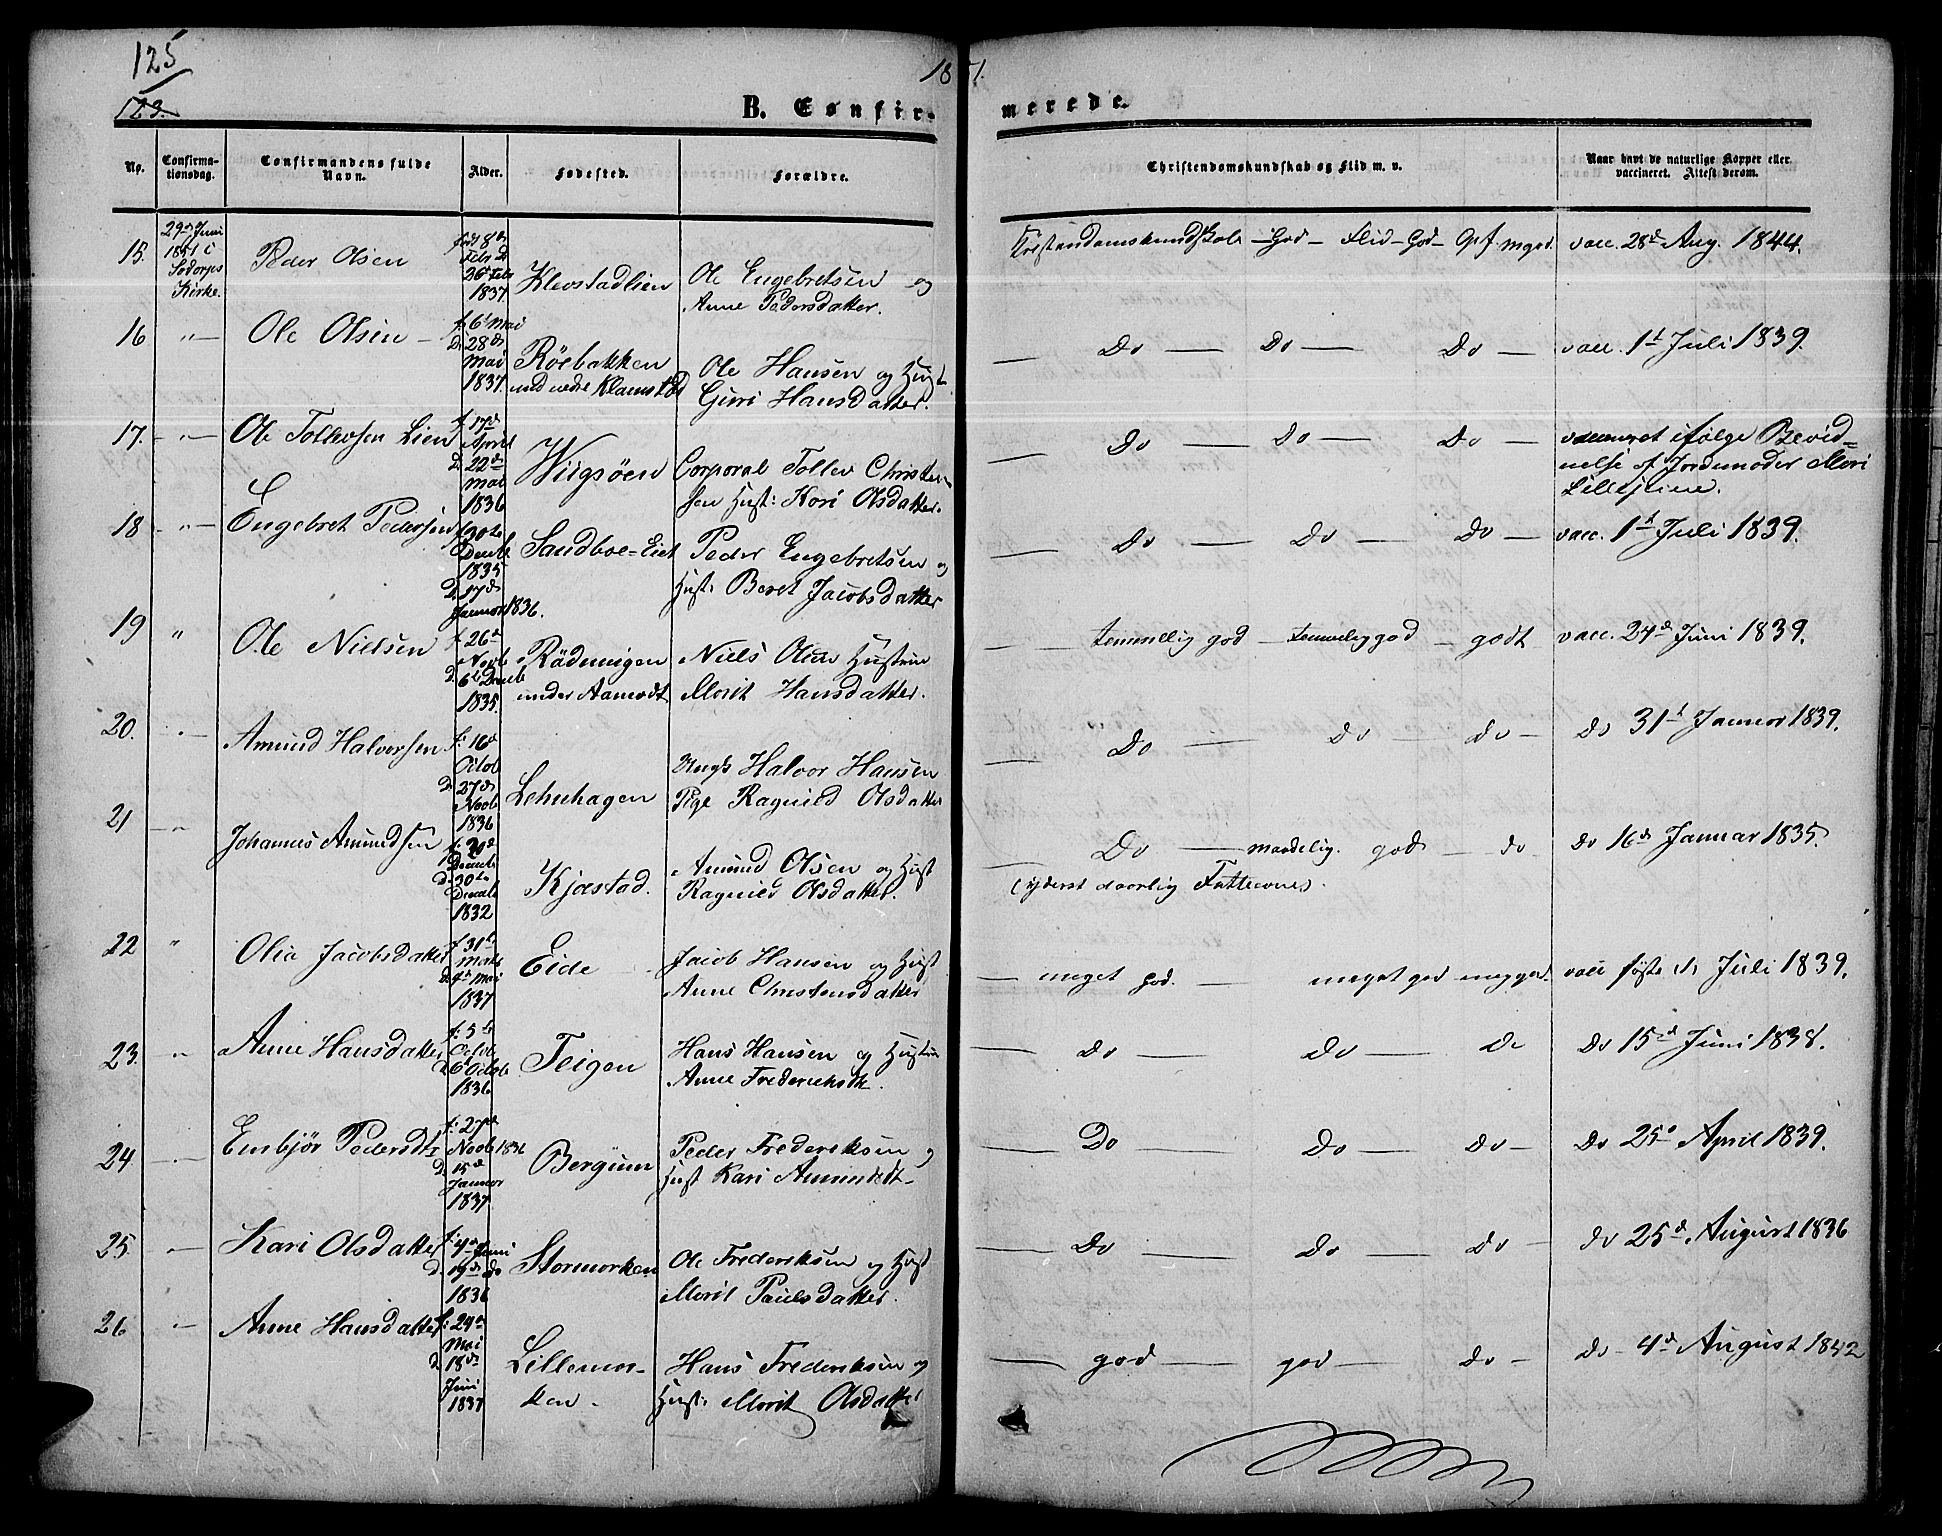 125
123.
1851.
B. Confirmerede.
No. Confirmationsdag. Confirmandens fulde Navn. Alder. Fødested. Forældre. Christendomskundskab og Flid m. v. Naar havt de naturlige Kopper eller vaccineret. Attest derom.
15. 29de Juni 1851 i Sødorps Kirke. Peder Olsen 8de Febr D 26de Febr 1837. Klevstadlien Ole Engebretsen og Anne Pedersdatter. Kristendomskundskab - God - Flid - God - Opf. mgod. vacc. 28de Aug. 1844.
16 " Ole Olsen f. 6te Mai D. 28de Mai 1837. Röebakken und nedre Klamstad Ole Hansen og Hust Guri Hansdatter. Do Do Do vacc. 1st Juli 1839.
17. " Ole Tollevsen Lien f. 17de April D. 22de Mai 1836 Wiigsöen Corporal Tollev Christensen Hust: Kari Olsdatter. Do Do Do vaccineret ifølge Bevidnelse af Jordemoder Mari
18 " Engebret Pedersen f. 30te Decemb 1835 D. 17de Januar 1836. Sandboe-Eiet Peder Engebretsen og Hust: Beret Jacobsdatter Do Do Do vacc. 1st Juli 1839.
19 " Ole Nielsen f. 26de Novb D. 6te Decemb 1835. under Aamodt Niels Olsen Hustru Marit Hansdatter. temmelig god - temmelig god - godt vacc. 24de Juni 1839.
20. " Amund Halvorsen f: 16de Octob D. 27de Novb 1836 Lehnhagen Ungk Halvor Hansen Pige Ragnild Olsdatter Do do do Do 31t Januar 1839.
21 " Johannes Amundsen f: 20de Decemb D. 30te Decemb 1832 Kjæstad. Amund Olsen og Hust Ragnild Olsdatter. Do maadelig. god - do Do 16de Januar 1835.
(yderst daarlig Fatteevne).
22 " Olia Jacobsdatter f. 31te Marts D. 9de Mai 1837 Eide Jacob Hansen og Hust Anne Christensdatter meget god. meget god meg god. vacc Juli 1839.
23. " Anne Hansdatter f: 5te Octob D. Octob 1836 Teigen Hans Hansen og Hustru Anne Frederiksdt. do Do Do Do 15de Juni 1838.
24 Embjör Pedersdt f: 27de Novb 1836 D. 15de Januar 1837. Bergum Peder Frederiksen og Hust Kari Amundsdt Do Do Do Do 25de April 1839.
25. Kari Olsdatter Juni D. 19de do 1836 Stormorken Ole Frederiksen og Hust Marit Paulsdatter. Do Do Do do 25de August 1836
26 Anne Hansdatter f: 24de Mai D. 18de Juni 1837 Lillemorken. Hans Frederiksen og Hust: Marit Olsdatter god god do Do 4de August 1842